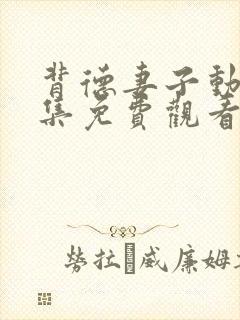 背德妻子動
集免費觀看
勞拉 威廉姆